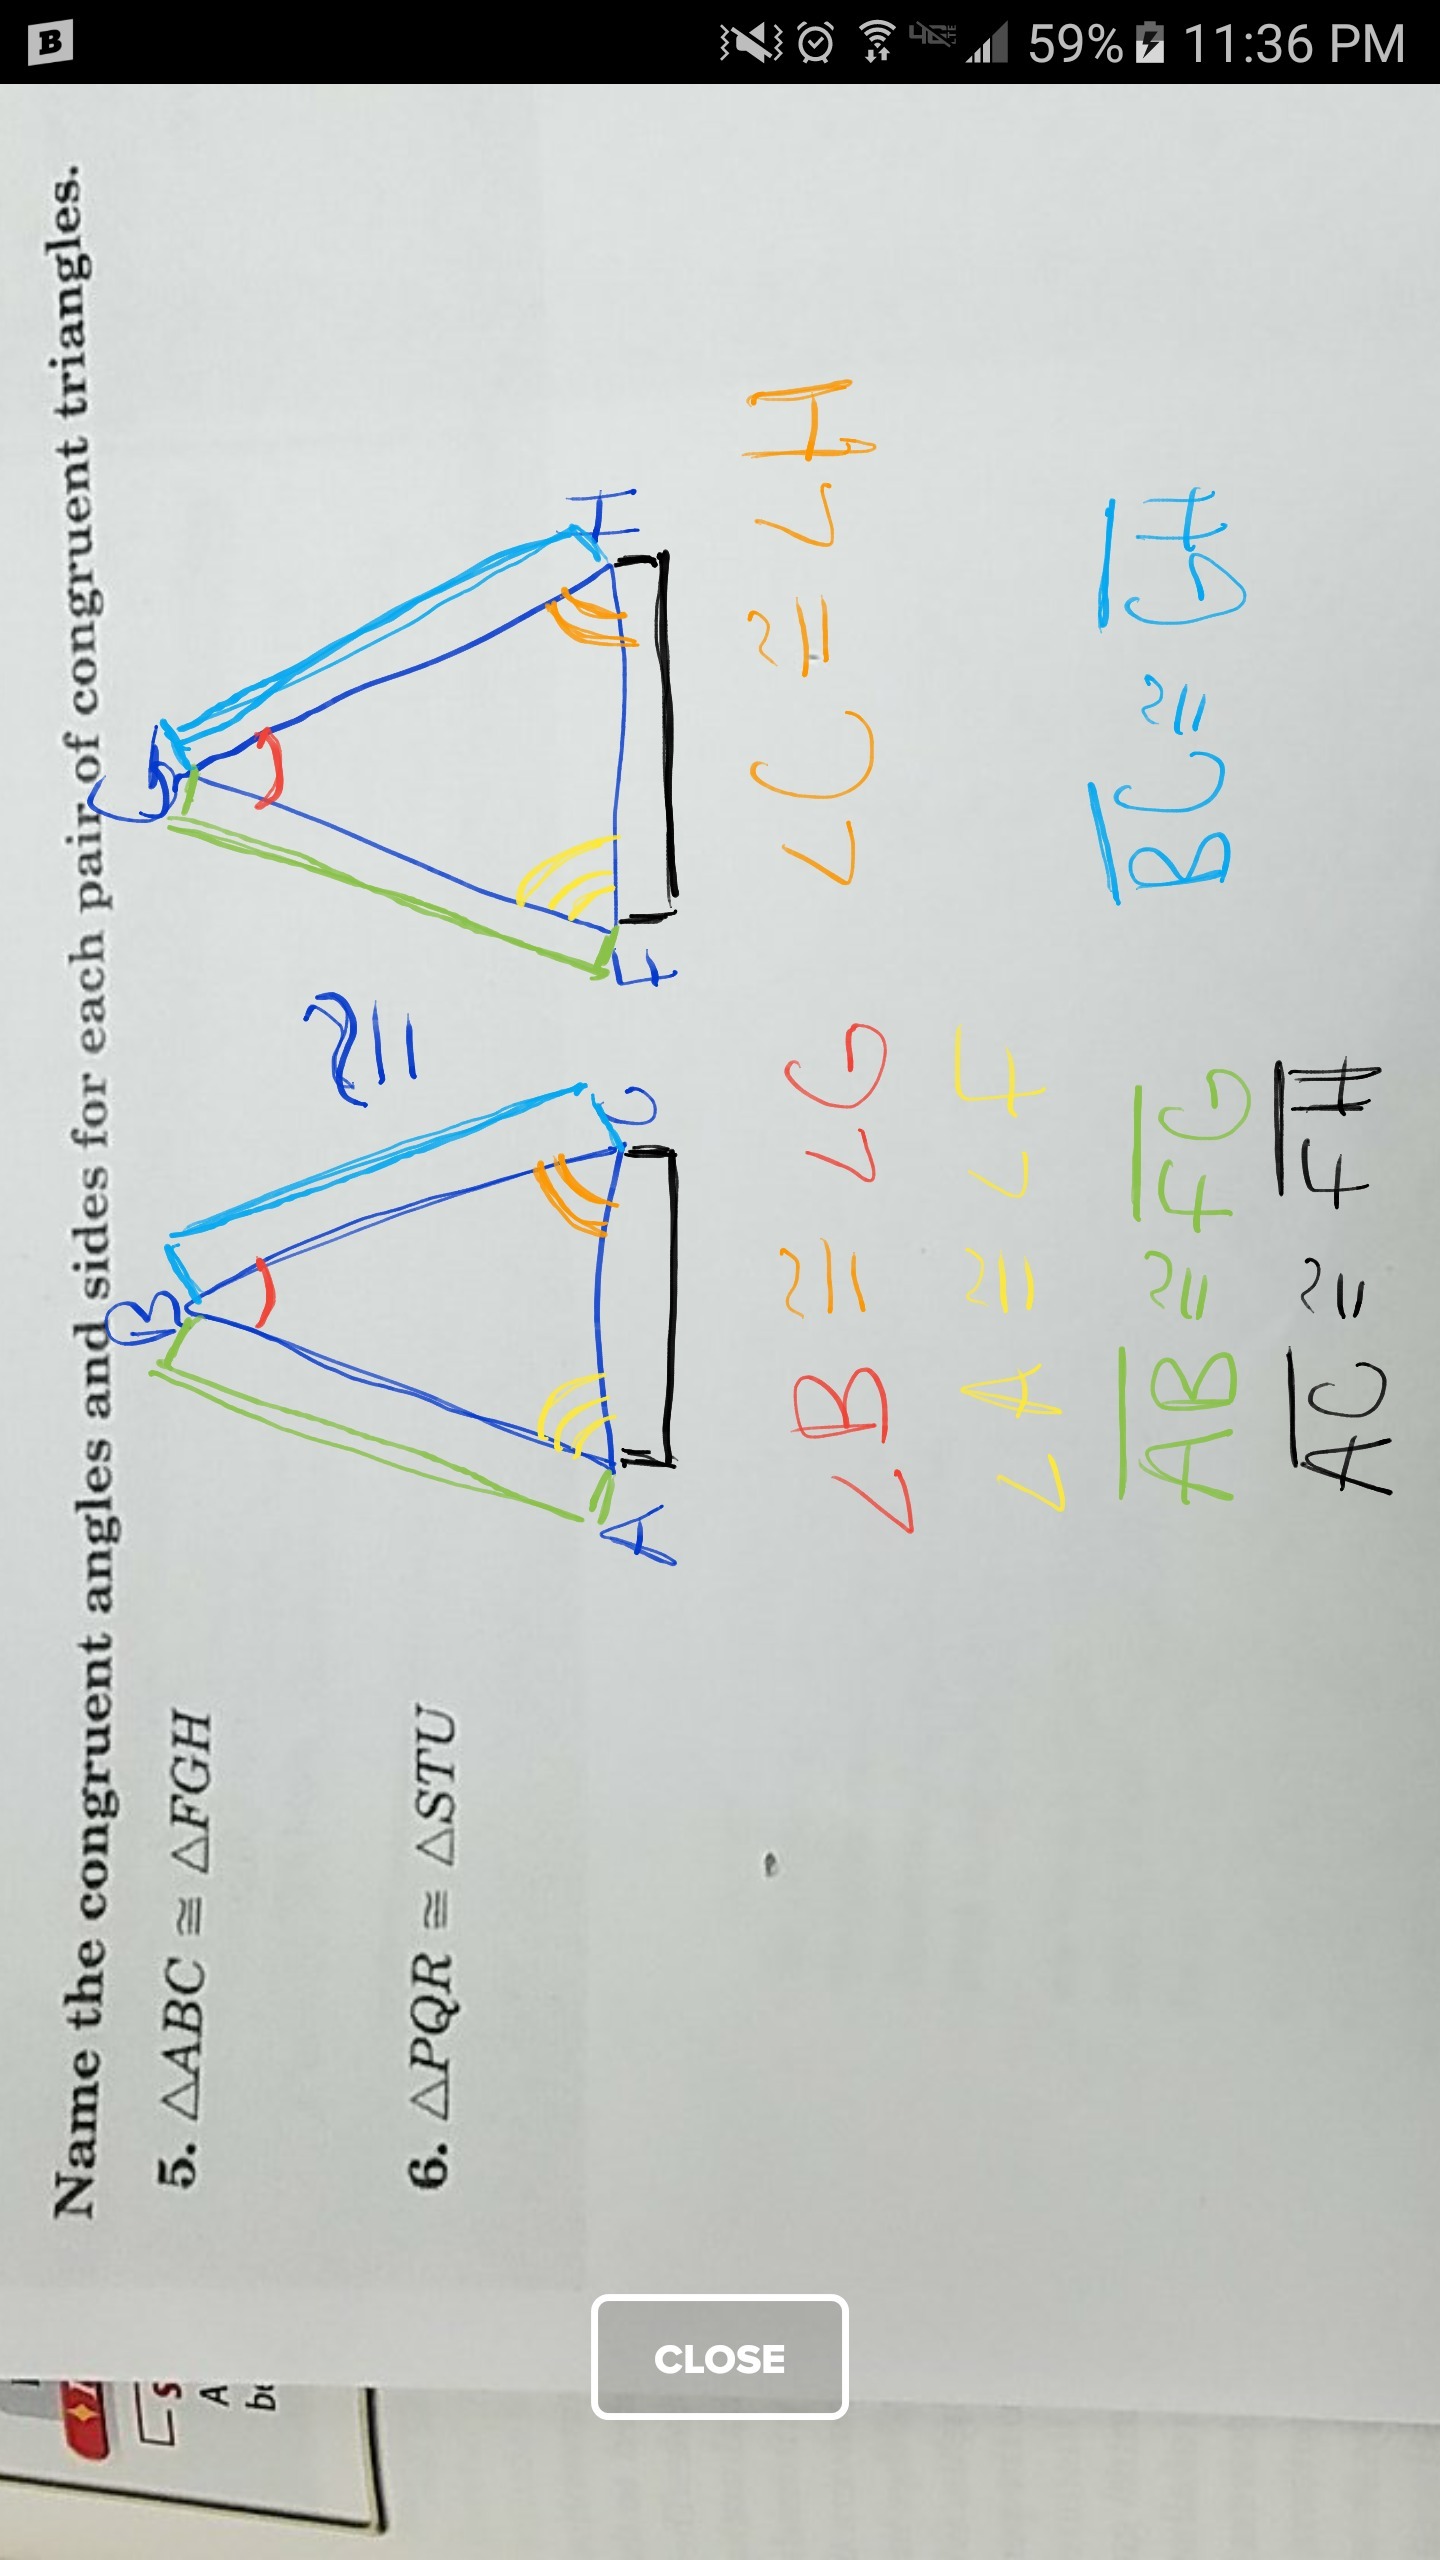 B
59% 11:36 PM
Name the congruent angles and sides for each pair of congruent triangles.
5. △ABC ≅ △FGH
6. △PQR ≅ △STU
B
G
≅
A
C
F
H
∠B ≅ ∠G
∠C ≅ ∠H
∠A ≅ ∠F
AB ≅ FG
BC ≅ GH
AC ≅ FH
A
CLOSE